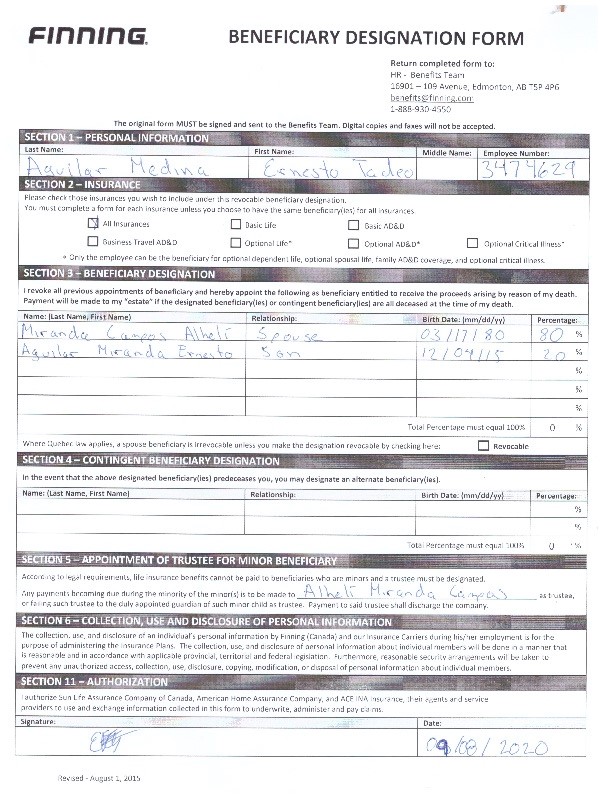 FINNING.
BENEFICIARY DESIGNATION FORM
Return completed form to:
HR - Benefits Team
16901 – 109 Avenue, Edmonton, AB T5P 4P6
benefits@finning.com
1-888-930-4550
The original form MUST be signed and sent to the Benefits Team. Digital copies and faxes will not be accepted.
SECTION 1 – PERSONAL INFORMATION
Last Name: First Name: Middle Name: Employee Number:
Aguilar Medina Ernesto Tadeo 3474629
SECTION 2 – INSURANCE
Please check those insurances you wish to include under this revocable beneficiary designation.
You must complete a form for each insurance unless you choose to have the same beneficiary(ies) for all insurances
All Insurances Basic Life Basic AD&D
Business Travel AD&D Optional Life* Optional AD&D* Optional Critical Illness*
* Only the employee can be the beneficiary for optional dependent life, optional spousal life, family AD&D coverage, and optional critical illness.
SECTION 3 – BENEFICIARY DESIGNATION
I revoke all previous appointments of beneficiary and hereby appoint the following as beneficiary entitled to receive the proceeds arising by reason of my death.
Payment will be made to my "estate" if the designated beneficiary(ies) or contingent beneficiary(ies) are all deceased at the time of my death.
Name: (Last Name, First Name) Relationship: Birth Date: (mm/dd/yy) Percentage:
Miranda Campos Alheli Spouse 03/17/80 80 %
Aguilar Miranda Ernesto Son 12/04/15 20 %
%
%
%
Total Percentage must equal 100% 0 %
Where Quebec law applies, a spouse beneficiary is irrevocable unless you make the designation revocable by checking here: Revocable
SECTION 4 – CONTINGENT BENEFICIARY DESIGNATION
In the event that the above designated beneficiary(ies) predeceases you, you may designate an alternate beneficiary(ies).
Name: (Last Name, First Name) Relationship: Birth Date: (mm/dd/yy) Percentage:
%
%
Total Percentage must equal 100% 0 %
SECTION 5 – APPOINTMENT OF TRUSTEE FOR MINOR BENEFICIARY
According to legal requirements, life insurance benefits cannot be paid to beneficiaries who are minors and a trustee must be designated.
Any payments becoming due during the minority of the minor(s) is to be made to Alheli Miranda Campos as trustee,
or failing such trustee to the duly appointed guardian of such minor child as trustee. Payment to said trustee shall discharge the company.
SECTION 6 – COLLECTION, USE AND DISCLOSURE OF PERSONAL INFORMATION
The collection, use, and disclosure of an individual's personal information by Finning (Canada) and our Insurance Carriers during his/her employment is for the
purpose of administering the Insurance Plans. The collection, use, and disclosure of personal information about individual members will be done in a manner that
is reasonable and in accordance with applicable provincial, territorial and federal legislation. Furthermore, reasonable security arrangements will be taken to
prevent any unauthorized access, collection, use, disclosure, copying, modification, or disposal of personal information about individual members.
SECTION 11 – AUTHORIZATION
I authorize Sun Life Assurance Company of Canada, American Home Assurance Company, and ACE INA Insurance, their agents and service
providers to use and exchange information collected in this form to underwrite, administer and pay claims.
Signature: Date:
09/08/2020
Revised - August 1, 2015